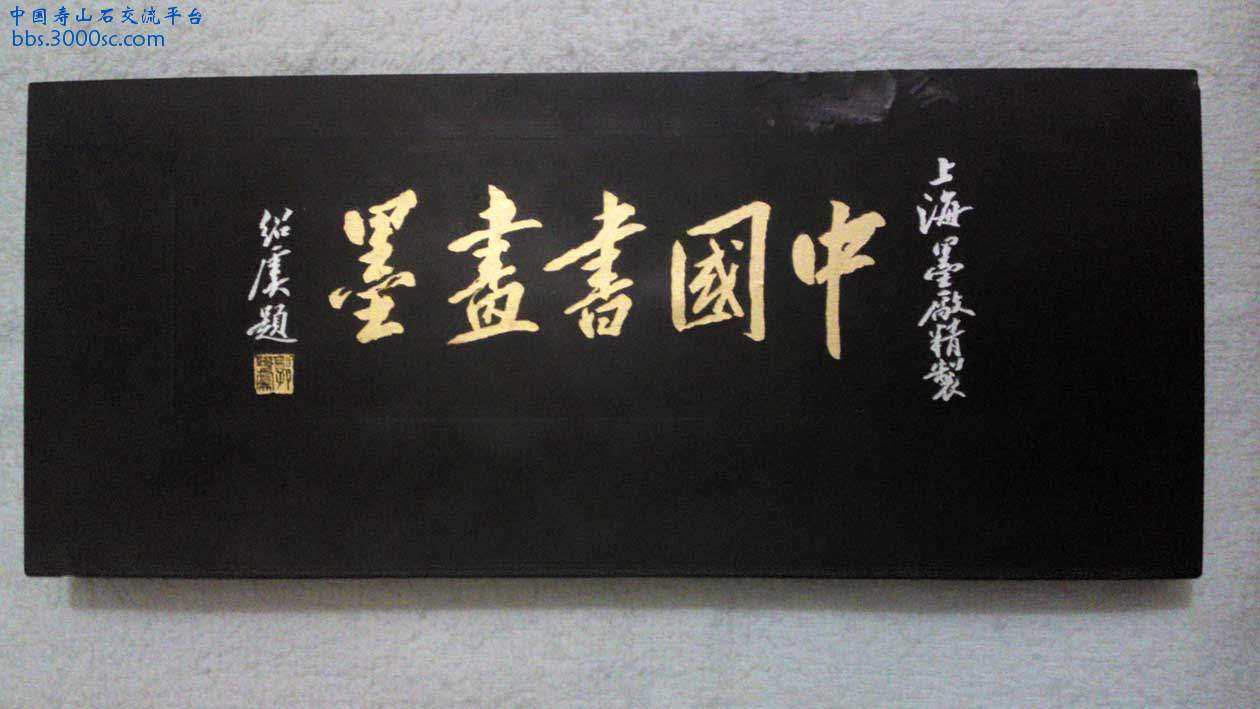 中国寿山石交流平台
bbs.3000sc.com
上海墨廠精製
中國書畫墨
紹虞題